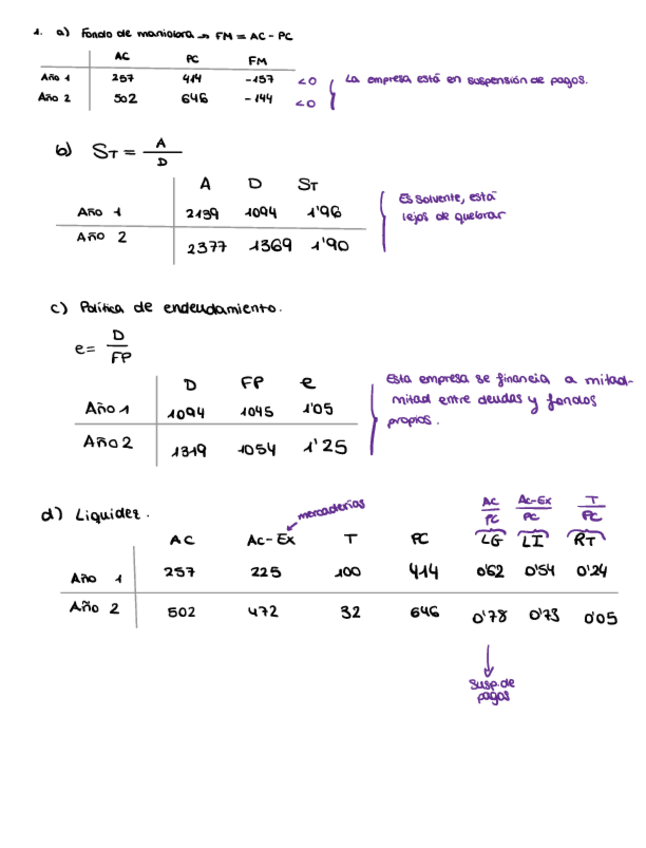 1. a) Fondo de maniobra → FM = AC - PC
AC PC FM
Año 1 257 414 -157 <0
Año 2 502 646 -144 <0
La empresa está en suspensión de pagos.
b) ST = A / D
A D ST
Año 1 2139 1094 1'96
Año 2 2377 1369 1'90
Es solvente, está
lejos de quebrar
c) Política de endeudamiento.
e = D / FP
D FP e
Año 1 1094 1045 1'05
Año 2 1319 1054 1'25
Esta empresa se financia a mitad-
mitad entre deudas y fondos
propios.
d) Liquidez.
mercaderías
AC/PC AC-Ex/PC T/PC
AC Ac-Ex T PC LG LI RT
Año 1 257 225 100 414 0'62 0'54 0'24
Año 2 502 472 32 646 0'78 0'73 0'05
Susp. de
pagos